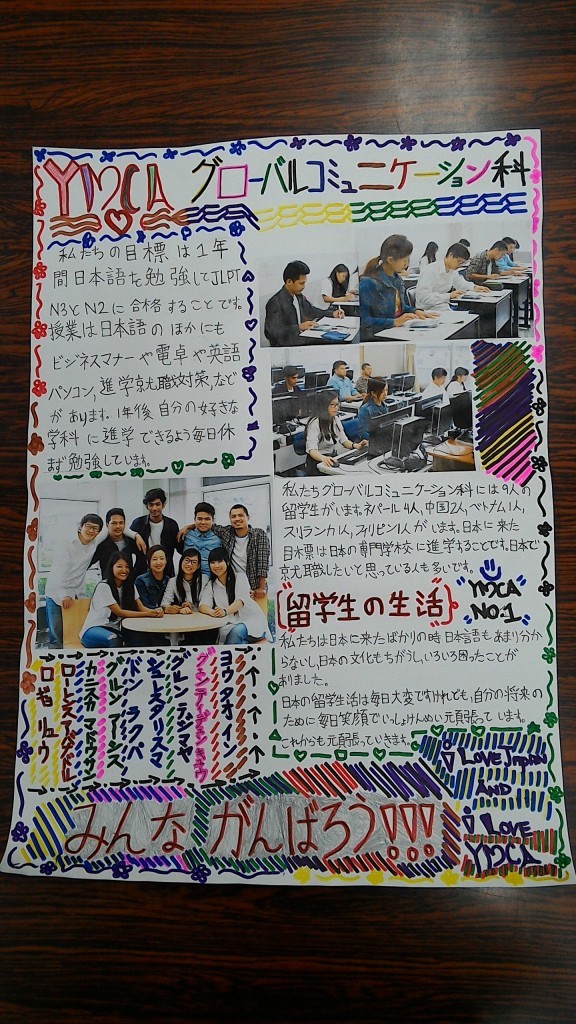 YMCA グローバルコミュニケーション科
私たちの目標は1年
間日本語を勉強してJLPT
N3とN2に合格することです。
授業は日本語のほかにも
ビジネスマナーや電卓や英語
パソコン,進学就職対策,など
があります。1年後自分の好きな
学科に進学できるよう毎日休
まず勉強しています。
私たちグローバルコミュニケーション科には9人の
留学生がいます。ネパール4人,中国2人,ベトナム1人,
スリランカ1人,フィリピン1人がいます。日本に来た
目標は日本の専門学校に進学することです。日本で
就職したいと思っている人も多いです。
{留学生の生活}
"YMCA
NO.1"
私たちは日本に来たばかりの時日本語もあまり分か
らないし,日本の文化もちがうし,いろいろ困ったことが
ありました。
日本の留学生活は毎日大変ですけれども,自分の将来の
ために毎日笑顔でいっしょけんめい元頁張っています。
これからも元頁張っていきます。
ヨウ タオイン
グエン ティ
グルン
シュレスタ リスマ
ボン ラクパ
カニスカ マドウサン
リュウ
みんな がんばろう!!!
i LOVE JAPAN
AND
i LOVE
YMCA